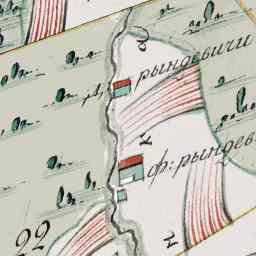 рындевичи
д:
ф: рындев
22